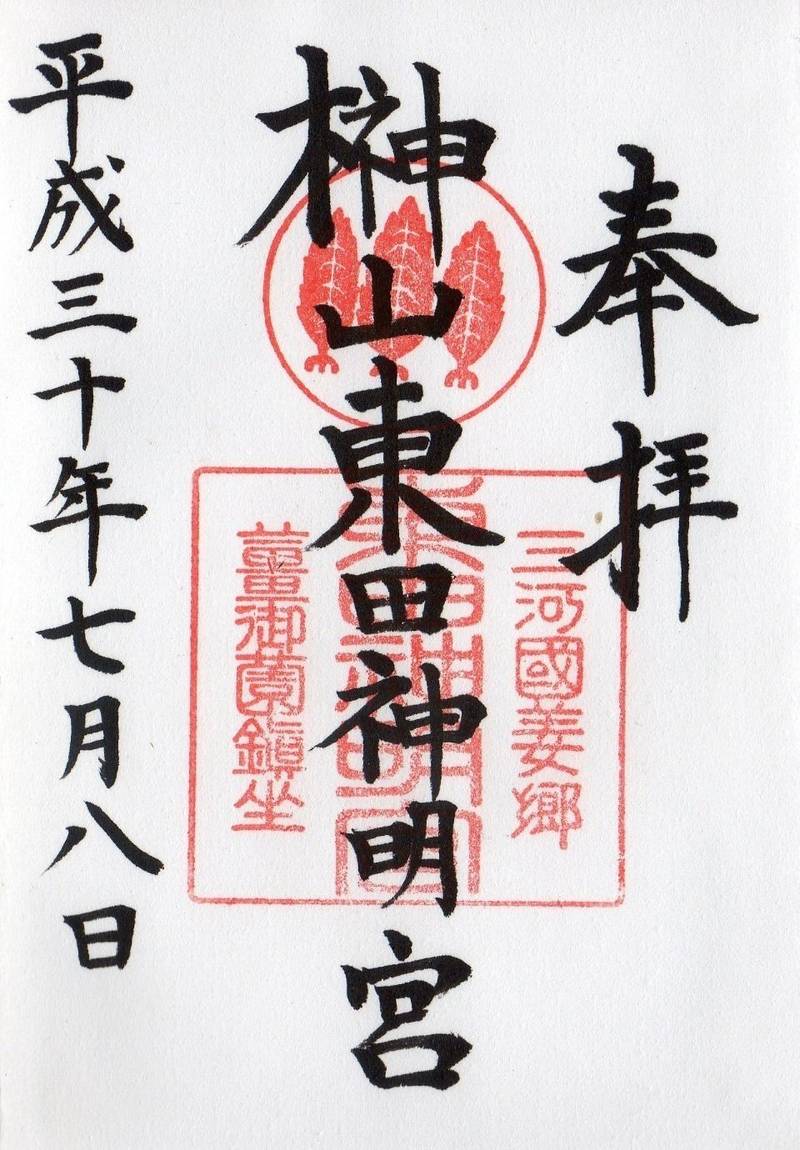 奉拝
榊山東田神明宮
三河國姜郷
東田神明宮
薑御薗鎮坐
平成三十年七月八日